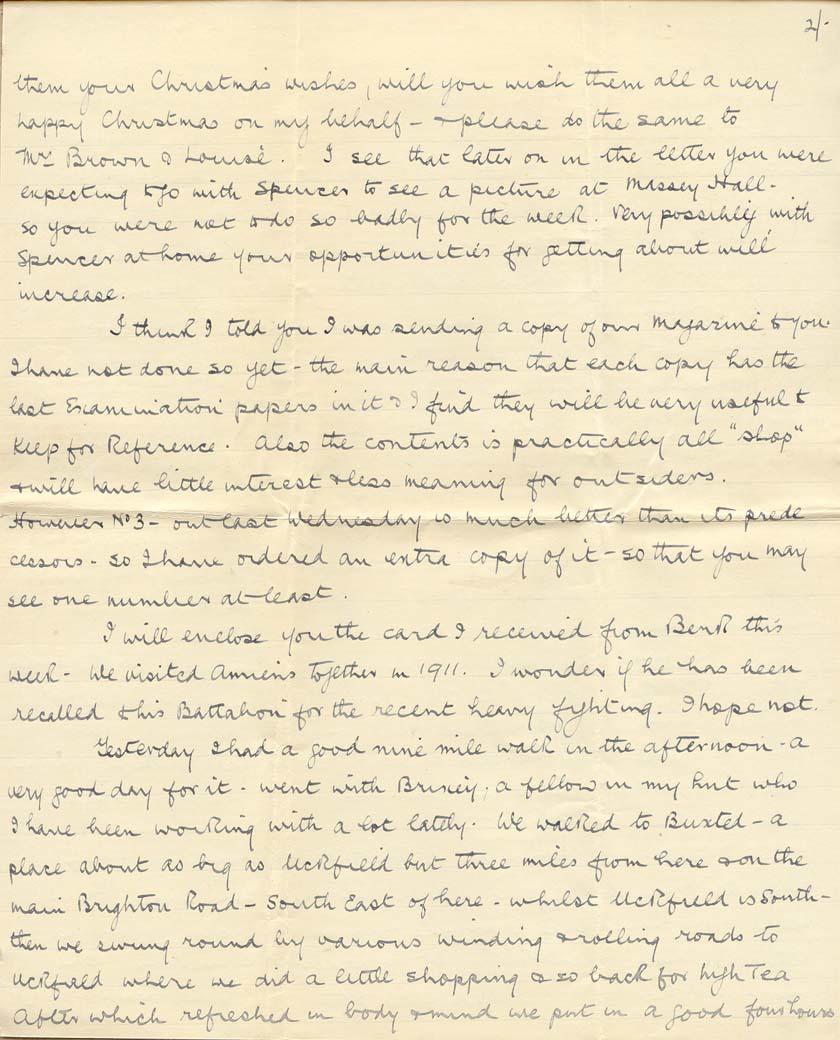 2/-
them your Christmas wishes, will you wish them all a very
happy Christmas on my behalf - & please do the same to
Mrs Brown & Louise. I see that later on in the letter you were
expecting to go with Spencer to see a picture at Massey Hall -
so you were not to do so badly for the week. Very possibly with
Spencer at home your opportunities for getting about will
increase.
I think I told you I was sending a copy of our Magazine to you.
I have not done so yet - the main reason that each copy has the
last Examination papers in it & I find they will be very useful to
keep for Reference. Also the contents is practically all "shop"
& will have little interest & less meaning for outsiders.
However No 3 - out last Wednesday is much better than its prede
cessors - so I have ordered an extra copy of it - so that you may
see one number at least.
I will enclose you the card I received from Berk this
week - We visited Amiens together in 1911. I wonder if he has been
recalled to his Battalion for the recent heavy fighting. I hope not.
Yesterday I had a good nine mile walk in the afternoon - a
very good day for it - went with Brixey, a fellow in my hut who
I have been working with a lot lately. We walked to Buxted - a
place about as big as Uckfield but three miles from here & on the
main Brighton Road - South East of here - whilst Uckfield is South -
then we swung round by various winding & rolling roads to
Uckfield where we did a little shopping & so back for high Tea
After which refreshed in body & mind we put in a good four hours